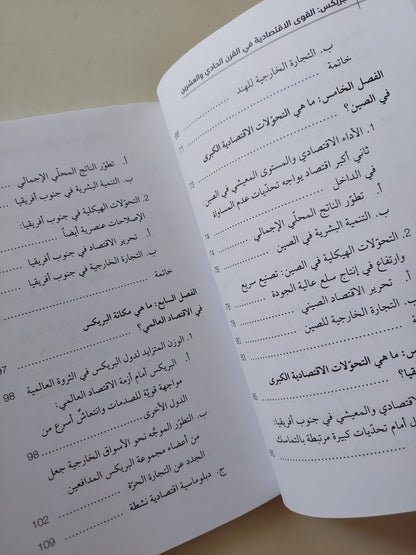 بريكس: القوى الاقتصادية في القرن الحادي والعشرين
ب. التجارة الخارجية للهند
خاتمة
68
الفصل الخامس: ما هي التحوّلات الاقتصادية الكبرى
في الصين؟
71
1. الأداء الاقتصادي والمستوى المعيشي في الصين:
ثاني أكبر اقتصاد يواجه تحدّيات عدم المساواة
في الداخل
73
أ. تطوّر الناتج المحلّي الإجمالي
74
ب. التنمية البشرية في الصين
2. التحوّلات الهيكلية في الصين: تصنيع سريع
وارتفاع في إنتاج سلع عالية الجودة
78
أ. تحرير الاقتصاد الصيني
79
ب. التجارة الخارجية للصين
خاتمة
83
س: ما هي التحوّلات الاقتصادية الكبرى
قيا؟
85
قتصادي والمعيشي في جنوب أفريقيا:
ل أمام تحدّيات كبيرة مرتبطة بالتماسك
أ. تطوّر الناتج المحلّي الإجمالي
ب. التنمية البشرية في جنوب أفريقيا
2. التحوّلات الهيكلية في جنوب أفريقيا:
الإصلاحات عنصرية أيضاً
أ. تحرير الاقتصاد في جنوب أفريقيا
ب. التجارة الخارجية في جنوب أفريقيا
خاتمة
الفصل السابع: ما هي مكانة البريكس
في الاقتصاد العالمي؟ 97
1. الوزن المتزايد لدول البريكس في الثروة العالمية 98
أ. البريكس أمام أزمة الاقتصاد العالمي:
مواجهة قويّة للصدمات وانتعاش أسرع من
الدول الأخرى 98
ب. التطوّر الموجّه نحو الأسواق الخارجية جعل
من أعضاء مجموعة البريكس المدافعين
الجدد عن التجارة الحرّة 102
ج. دبلوماسية اقتصادية نشطة 109